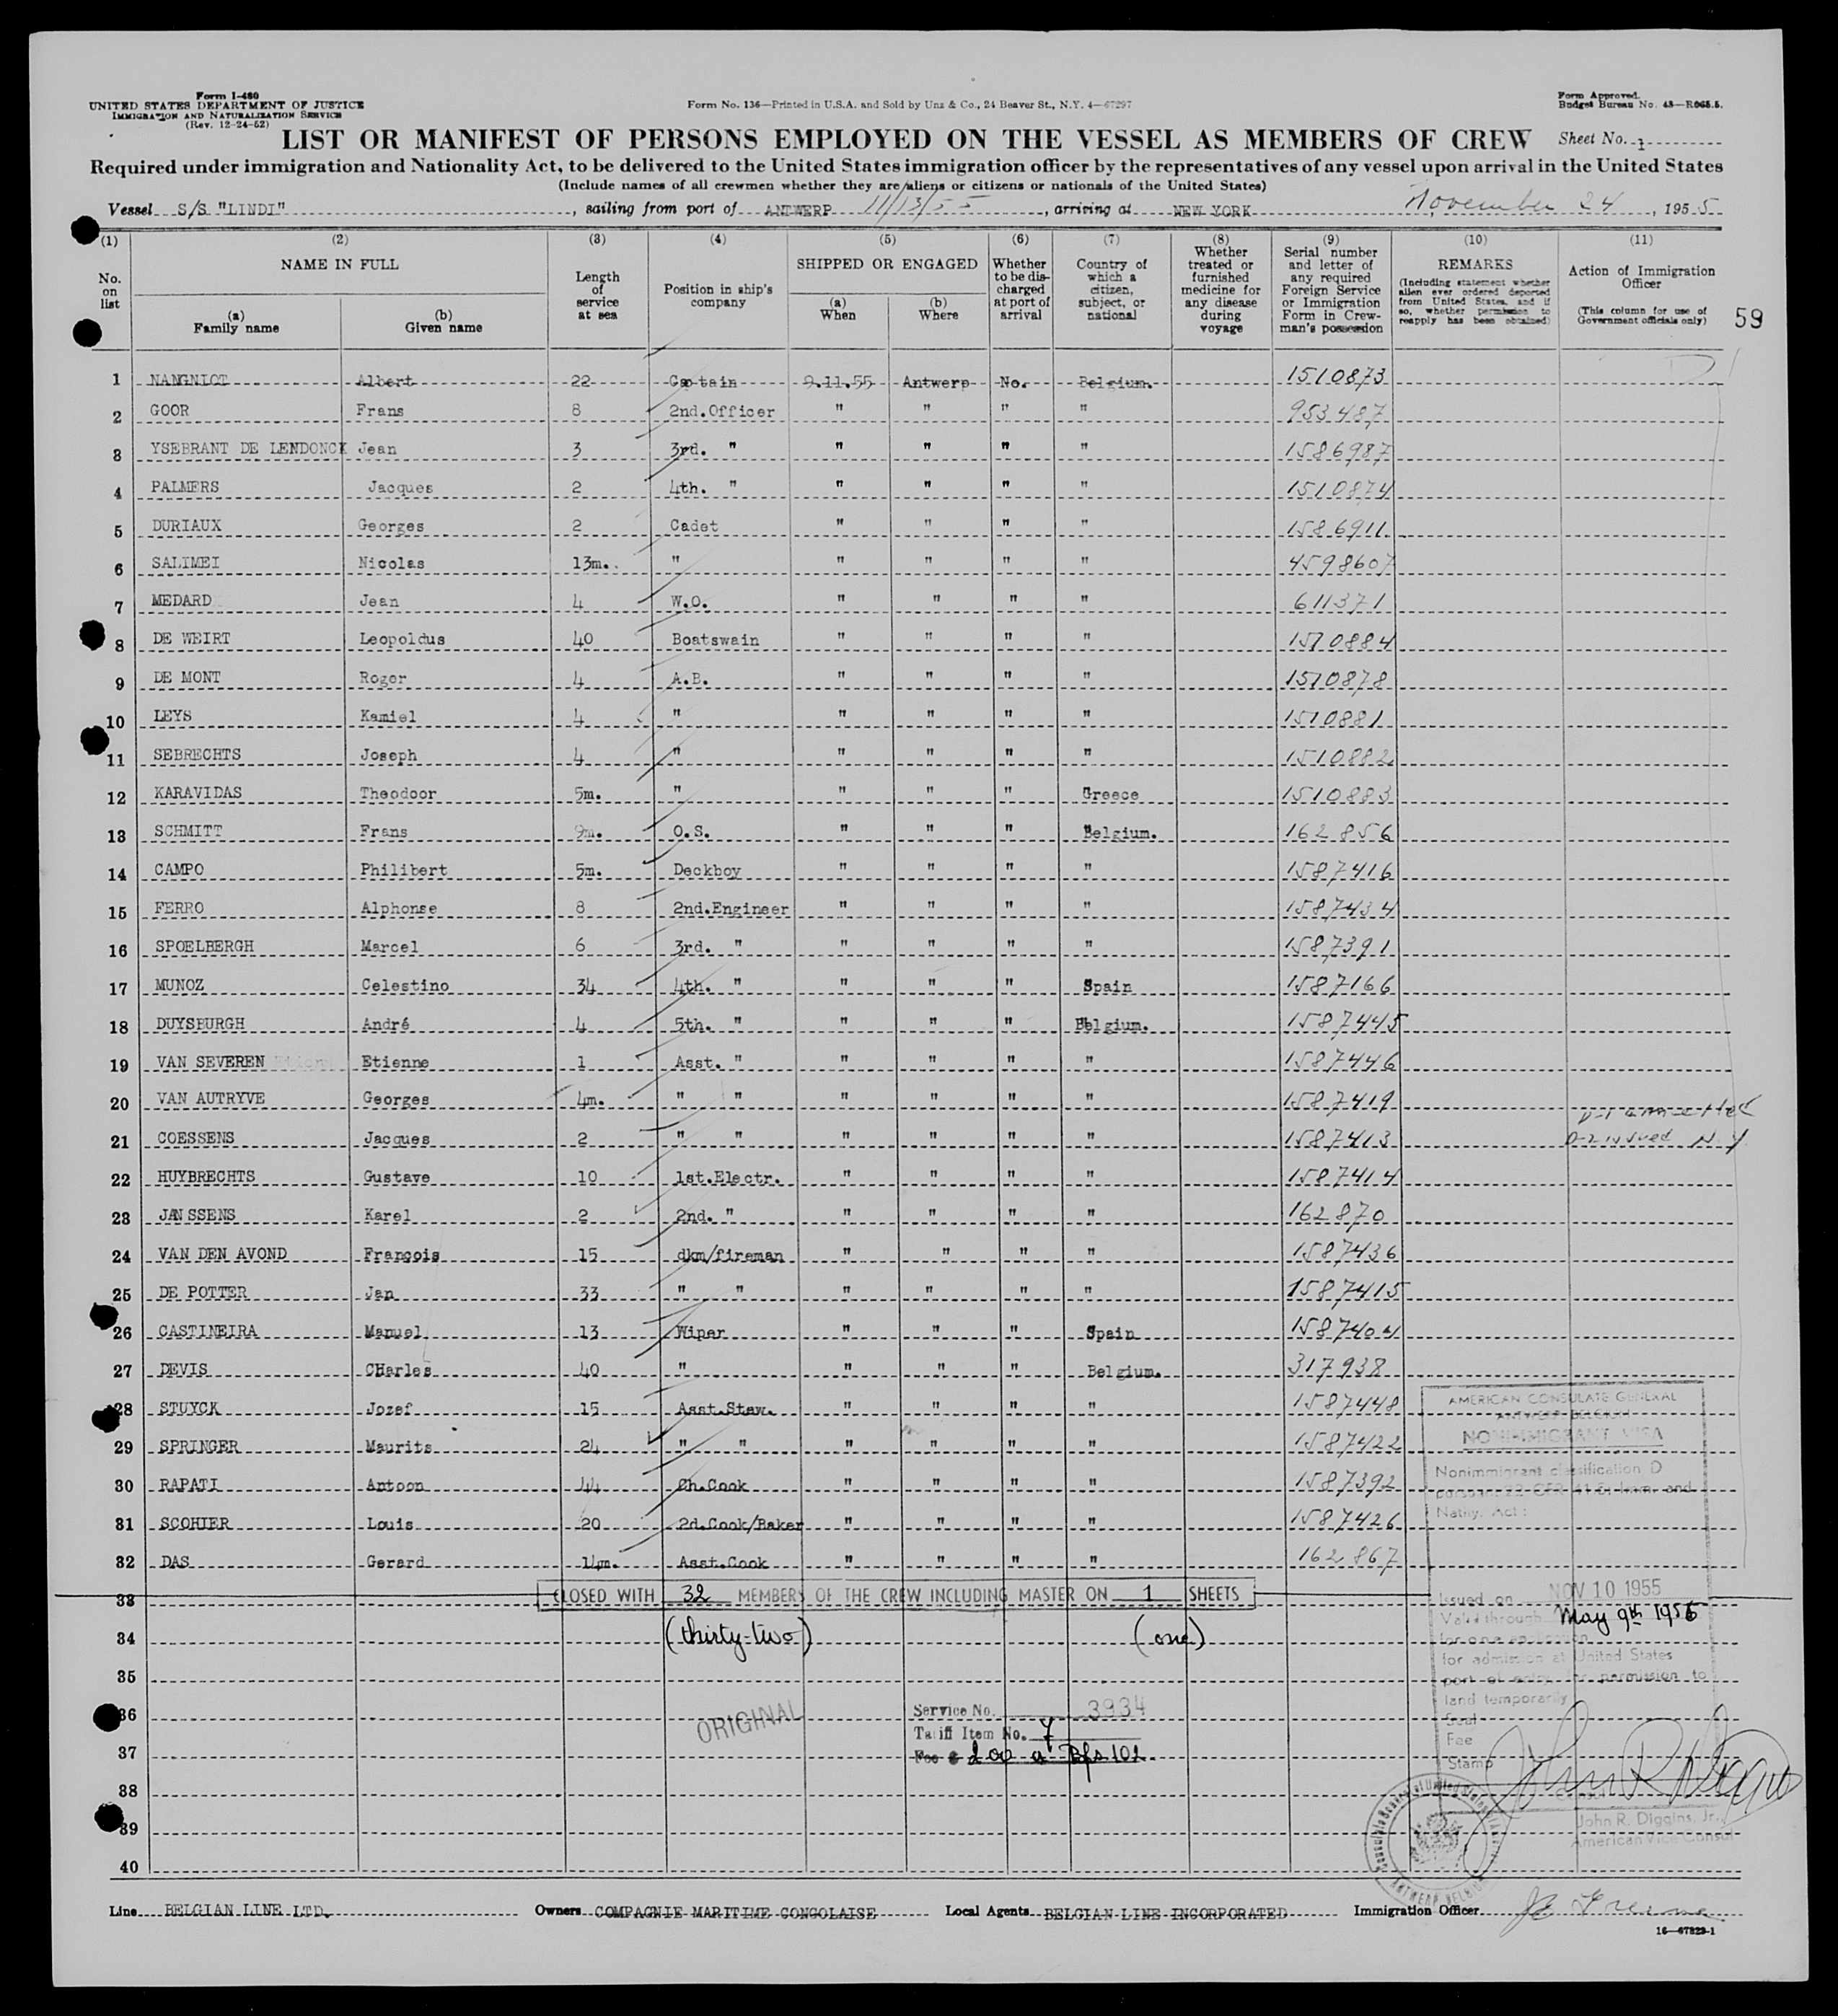 Form I-480
UNITED STATES DEPARTMENT OF JUSTICE
IMMIGRATION AND NATURALIZATION SERVICE
(Rev. 12-24-52)
Form No. 136—Printed in U.S.A. and Sold by Unz & Co., 24 Beaver St., N.Y. 4—67297
Form Approved.
Budget Bureau No. 43—R065.5.
LIST OR MANIFEST OF PERSONS EMPLOYED ON THE VESSEL AS MEMBERS OF CREW
Sheet No. 1
Required under immigration and Nationality Act, to be delivered to the United States immigration officer by the representatives of any vessel upon arrival in the United States
(Include names of all crewmen whether they are aliens or citizens or nationals of the United States)
Vessel S/S "LINDI", sailing from port of ANTWERP 11/13/55, arriving at NEW YORK November 24, 1955
(1) (2) (3) (4) (5) (6) (7) (8) (9) (10) (11)
No. on list
NAME IN FULL
(a) Family name
(b) Given name
Length of service at sea
Position in ship's company
SHIPPED OR ENGAGED
(a) When
(b) Where
Whether to be discharged at port of arrival
Country of which a citizen, subject, or national
Whether treated or furnished medicine for any disease during voyage
Serial number and letter of any required Foreign Service or Immigration Form in Crewman's possession
REMARKS
(Including statement whether alien ever ordered deported from United States, and if so, whether permission to reapply has been obtained)
Action of Immigration Officer
(This column for use of Government officials only)
59
1 NANGNIOT Albert 22 Captain 9.11.55 Antwerp No. Belgium. 1510873
2 GOOR Frans 8 2nd.Officer " " " " 953487
3 YSEBRANT DE LENDONCK Jean 3 3rd. " " " " " 1586987
4 PALMERS Jacques 2 4th. " " " " " 1510874
5 DURIAUX Georges 2 Cadet " " " " 1586911
6 SALIMEI Nicolas 13m. " " " " " 4598607
7 MEDARD Jean 4 W.O. " " " " 611371
8 DE WEIRT Leopoldus 40 Boatswain " " " " 1510884
9 DE MONT Roger 4 A.B. " " " " 1510878
10 LEYS Kamiel 4 " " " " " 1510881
11 SEBRECHTS Joseph 4 " " " " " 1510882
12 KARAVIDAS Theodoor 5m. " " " " Greece 1510883
13 SCHMITT Frans 9m. O.S. " " " Belgium. 162856
14 CAMPO Philibert 5m. Deckboy " " " " 1587416
15 FERRO Alphonse 8 2nd.Engineer " " " " 1587434
16 SPOELBERGH Marcel 6 3rd. " " " " " 1587391
17 MUNOZ Celestino 34 4th. " " " " Spain 1587166
18 DUYSBURGH André 4 5th. " " " " Belgium. 1587445
19 VAN SEVEREN Etienne 1 Asst. " " " " " 1587446
20 VAN AUTRYVE Georges 4m. " " " " " " 1587419
21 COESSENS Jacques 2 " " " " " " 1587413 D-2 issued N.Y.
22 HUYBRECHTS Gustave 10 1st.Electr. " " " " 1587414
23 JANSSENS Karel 2 2nd. " " " " " 162870
24 VAN DEN AVOND François 15 dkm/fireman " " " " 1587436
25 DE POTTER Jan 33 " " " " " " 1587415
26 CASTINEIRA Manuel 13 Wiper " " " Spain 1587404
27 DEVIS CHarles 40 " " " " Belgium. 317938
28 STUYCK Jozef 15 Asst.Stew. " " " " 1587448
29 SPRINGER Maurits 24 " " " " " " 1587422
30 RAPATI Antoon 44 Ch.Cook " " " " 1587392
31 SCOHIER Louis 20 2d.Cook/Baker " " " " 1587426
32 DAS Gerard 14m. Asst.Cook " " " " 162867
33 CLOSED WITH 32 MEMBERS OF THE CREW INCLUDING MASTER ON 1 SHEETS
34 (thirty-two) (one)
35
36
37
38
39
40
AMERICAN CONSULATE GENERAL
ANTWERP, BELGIUM
NONIMMIGRANT VISA
Nonimmigrant classification D
pursuant 22 CFR 41.5; Imm. and
Natlty. Act:
Issued on NOV 10 1955
Valid through May 9th 1956
for one application
for admission at United States
port of entry, for permission to
land temporarily
Seal
Fee
Stamp
ORIGINAL
Service No. 3934
Tariff Item No. 7
Fee $ 2.00 = Bfs 102
Consul
John R. Diggins, Jr.
American Vice Consul
ANTWERP BELGIUM
Line BELGIAN LINE LTD. Owners COMPAGNIE MARITIME CONGOLAISE Local Agents BELGIAN LINE INCORPORATED Immigration Officer
16—67823-1